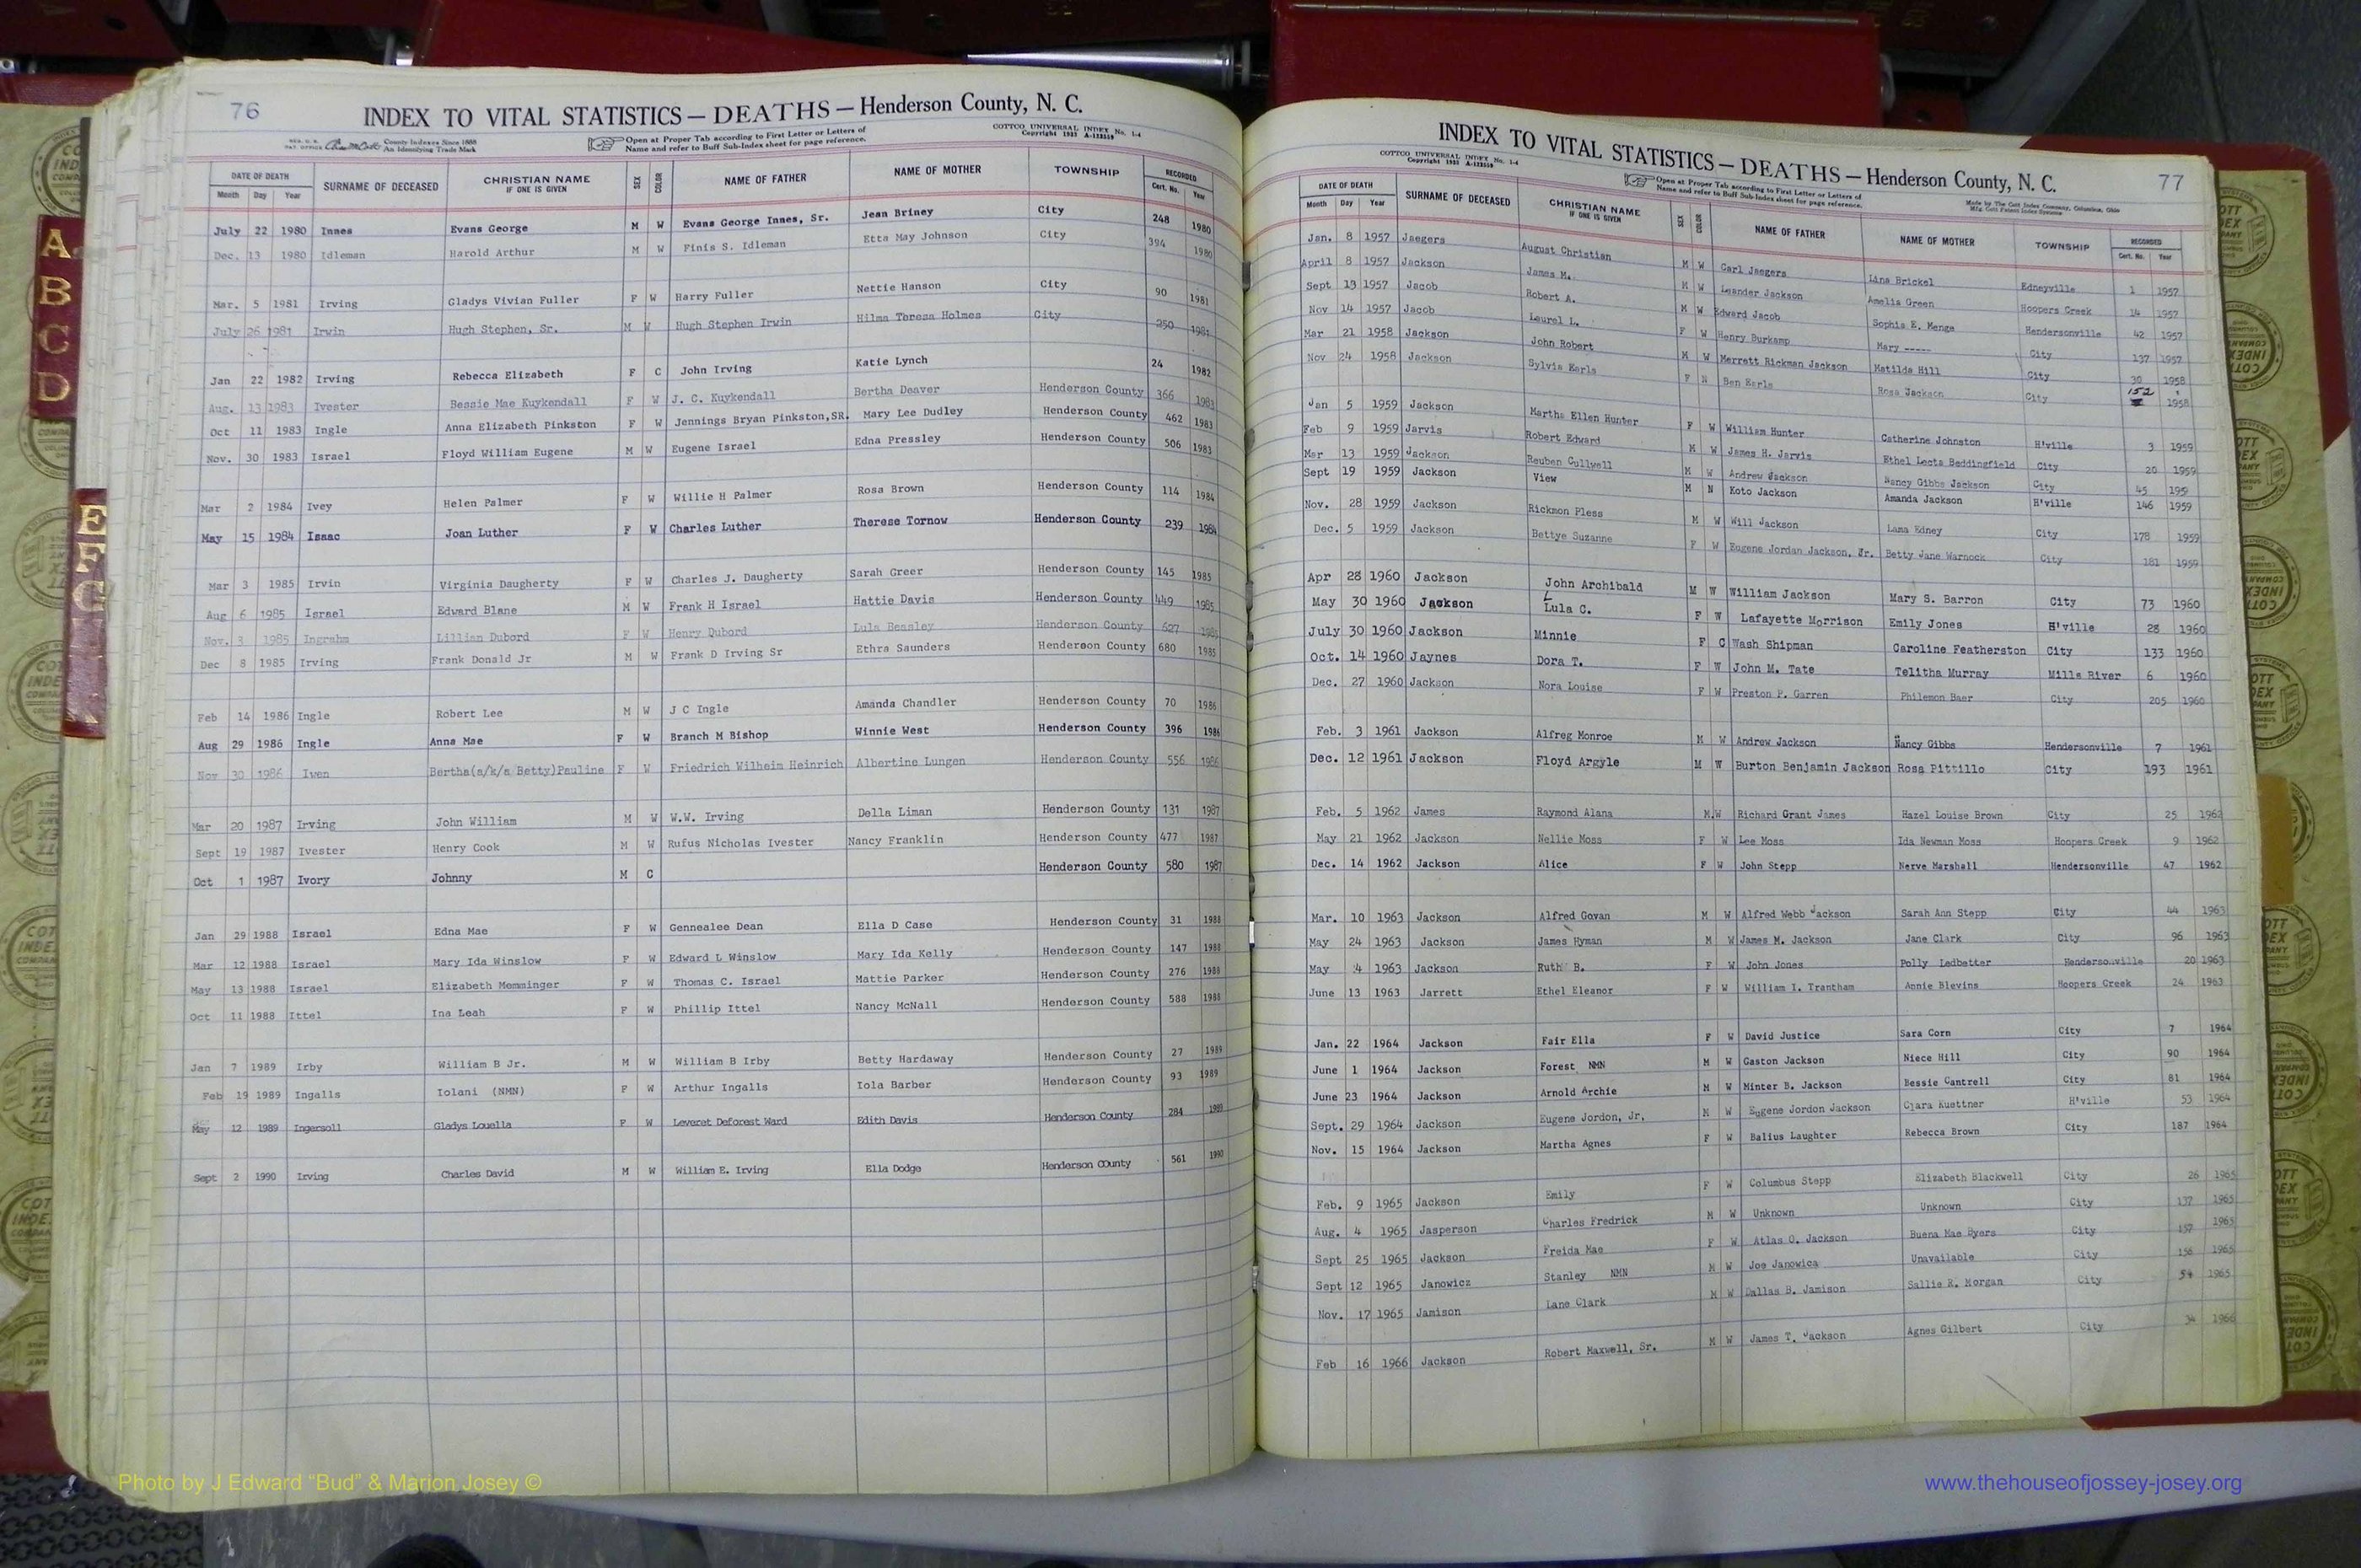 76
INDEX TO VITAL STATISTICS — DEATHS — Henderson County, N. C.
County Indexes Since 1888
An Identifying Trade Mark
Open at Proper Tab according to First Letter or Letters of
Name and refer to Buff Sub-Index sheet for page reference.
COTTCO UNIVERSAL INDEX No. 1-4
Copyright 1931 A-123559
DATE OF DEATH SURNAME OF DECEASED CHRISTIAN NAME IF ONE IS GIVEN SEX COLOR NAME OF FATHER NAME OF MOTHER TOWNSHIP RECORDED
Month Day Year Cert. No. Year
July 22 1980 Innes Evans George M W Evans George Innes, Sr. Jean Briney City 248 1980
Dec. 13 1980 Idleman Harold Arthur M W Finis S. Idleman Etta May Johnson City 394 1980
Mar. 5 1981 Irving Gladys Vivian Fuller F W Harry Fuller Nettie Hanson City 90 1981
July 26 1981 Irwin Hugh Stephen, Sr. M W Hugh Stephen Irwin Hilma Teresa Holmes City 250 1981
Jan 22 1982 Irving Rebecca Elizabeth F C John Irving Katie Lynch 24 1982
Aug. 13 1983 Ivester Bessie Mae Kuykendall F W J. C. Kuykendall Bertha Deaver Henderson County 366 1983
Oct 11 1983 Ingle Anna Elizabeth Pinkston F W Jennings Bryan Pinkston,SR. Mary Lee Dudley Henderson County 462 1983
Nov. 30 1983 Israel Floyd William Eugene M W Eugene Israel Edna Pressley Henderson County 506 1983
Mar 2 1984 Ivey Helen Palmer F W Willie H Palmer Rosa Brown Henderson County 114 1984
May 15 1984 Isaac Joan Luther F W Charles Luther Therese Tornow Henderson County 239 1984
Mar 3 1985 Irvin Virginia Daugherty F W Charles J. Daugherty Sarah Greer Henderson County 145 1985
Aug 6 1985 Israel Edward Blane M W Frank H Israel Hattie Davis Henderson County 449 1985
Nov. 3 1985 Ingrahm Lillian Dubord F W Henry Dubord Lula Beasley Henderson County 627 1985
Dec 8 1985 Irving Frank Donald Jr M W Frank D Irving Sr Ethra Saunders Henderson County 680 1985
Feb 14 1986 Ingle Robert Lee M W J C Ingle Amanda Chandler Henderson County 70 1986
Aug 29 1986 Ingle Anna Mae F W Branch M Bishop Winnie West Henderson County 396 1986
Nov 30 1986 Iven Bertha(a/k/a Betty)Pauline F W Friedrich Wilheim Heinrich Albertine Lungen Henderson County 556 1986
Mar 20 1987 Irving John William M W W.W. Irving Della Liman Henderson County 131 1987
Sept 19 1987 Ivester Henry Cook M W Rufus Nicholas Ivester Nancy Franklin Henderson County 477 1987
Oct 1 1987 Ivory Johnny M C Henderson County 580 1987
Jan 29 1988 Israel Edna Mae F W Gennealee Dean Ella D Case Henderson County 31 1988
Mar 12 1988 Israel Mary Ida Winslow F W Edward L Winslow Mary Ida Kelly Henderson County 147 1988
May 13 1988 Israel Elizabeth Memminger F W Thomas C. Israel Mattie Parker Henderson County 276 1988
Oct 11 1988 Ittel Ina Leah F W Phillip Ittel Nancy McNall Henderson County 588 1988
Jan 7 1989 Irby William B Jr. M W William B Irby Betty Hardaway Henderson County 27 1989
Feb 19 1989 Ingalls Iolani (NMN) F W Arthur Ingalls Iola Barber Henderson County 93 1989
May 12 1989 Ingersoll Gladys Louella F W Leveret Deforest Ward Edith Davis Henderson County 284 1989
Sept 2 1990 Irving Charles David M W William E. Irving Ella Dodge Henderson COunty 561 1990
77
INDEX TO VITAL STATISTICS — DEATHS — Henderson County, N. C.
COTTCO UNIVERSAL INDEX No. 1-4
Copyright 1931 A-123559
Open at Proper Tab according to First Letter or Letters of
Name and refer to Buff Sub-Index sheet for page reference.
Made by The Cott Index Company, Columbus, Ohio
DATE OF DEATH SURNAME OF DECEASED CHRISTIAN NAME IF ONE IS GIVEN SEX COLOR NAME OF FATHER NAME OF MOTHER TOWNSHIP RECORDED
Month Day Year Cert. No. Year
Jan. 8 1957 Jaegers August Christian M W Carl Jaegers Lina Brickel Edneyville 1 1957
April 8 1957 Jackson James M. M W Leander Jackson Amelia Green Hoopers Creek 14 1957
Sept 13 1957 Jacob Robert A. M W Edward Jacob Sophia E. Menge Hendersonville 42 1957
Nov 14 1957 Jacob Laurel L. F W Henry Burkamp Mary ----- City 137 1957
Mar 21 1958 Jackson John Robert M W Merrett Rickman Jackson Matilda Hill City 30 1958
Nov 24 1958 Jackson Sylvia Earls F N Ben Earls Rosa Jackson City 152 1958
Jan 5 1959 Jackson Martha Ellen Hunter F W William Hunter Catherine Johnston H'ville 3 1959
Feb 9 1959 Jarvis Robert Edward M W James H. Jarvis Ethel Leota Beddingfield City 20 1959
Mar 13 1959 Jackson Reuben Cullvell M W Andrew Jackson Nancy Gibbs Jackson City 45 195
Sept 19 1959 Jackson View M N Koto Jackson Amanda Jackson H'ville 146 1959
Nov. 28 1959 Jackson Rickmon Pless M W Will Jackson Lama Edney City 178 1959
Dec. 5 1959 Jackson Bettye Suzanne F W Eugene Jordan Jackson, Jr. Betty Jane Warnock City 181 1959
Apr 28 1960 Jackson John Archibald M W William Jackson Mary S. Barron City 73 1960
May 30 1960 Jackson Lula C. F W Lafayette Morrison Emily Jones H'ville 28 1960
July 30 1960 Jackson Minnie F C Wash Shipman Caroline Featherston City 133 1960
Oct. 14 1960 Jaynes Dora T. F W John M. Tate Telitha Murray Mills River 6 1960
Dec. 27 1960 Jackson Nora Louise F W Preston P. Garren Philemon Baer City 205 1960
Feb. 3 1961 Jackson Alfreg Monroe M W Andrew Jackson Nancy Gibbs Hendersonville 7 1961
Dec. 12 1961 Jackson Floyd Argyle M W Burton Benjamin Jackson Rosa Pittillo City 193 1961
Feb. 5 1962 James Raymond Alana M.W Richard Grant James Hazel Louise Brown City 25 1962
May 21 1962 Jackson Nellie Moss F W Lee Moss Ida Newman Moss Hoopers Creek 9 1962
Dec. 14 1962 Jackson Alice F W John Stepp Nerve Marshall Hendersonville 47 1962
Mar. 10 1963 Jackson Alfred Govan M W Alfred Webb Jackson Sarah Ann Stepp City 44 1963
May 24 1963 Jackson James Hyman M W James M. Jackson Jane Clark City 96 1963
May 4 1963 Jackson Ruth B. F W John Jones Polly Ledbetter Hendersonville 20 1963
June 13 1963 Jarrett Ethel Eleanor F W William I. Trantham Annie Blevins Hoopers Creek 24 1963
Jan. 22 1964 Jackson Fair Ella F W David Justice Sara Corn City 7 1964
June 1 1964 Jackson Forest NMN M W Gaston Jackson Niece Hill City 90 1964
June 23 1964 Jackson Arnold Archie M W Minter B. Jackson Bessie Cantrell City 81 1964
Sept. 29 1964 Jackson Eugene Jordon, Jr. M W Eugene Jordon Jackson Clara Kuettner H'ville 53 1964
Nov. 15 1964 Jackson Martha Agnes F W Balius Laughter Rebecca Brown City 187 1964
Feb. 9 1965 Jackson Emily F W Columbus Stepp Elizabeth Blackwell City 26 1965
Aug. 4 1965 Jasperson Charles Fredrick M W Unknown Unknown City 137 1965
Sept 25 1965 Jackson Freida Mae F W Atlas O. Jackson Buena Mae Byers City 157 1965
Sept 12 1965 Janowicz Stanley NMN M W Joe Janowica Unavailable City 156 1965
Nov. 17 1965 Jamison Lane Clark M W Dallas B. Jamison Sallie R. Morgan City 54 1965
Feb 16 1966 Jackson Robert Maxwell, Sr. M W James T. Jackson Agnes Gilbert City 34 1966
A
B
C
D
E
F
G
Photo by J Edward “Bud” & Marion Josey ©
www.thehouseofjossey-josey.org